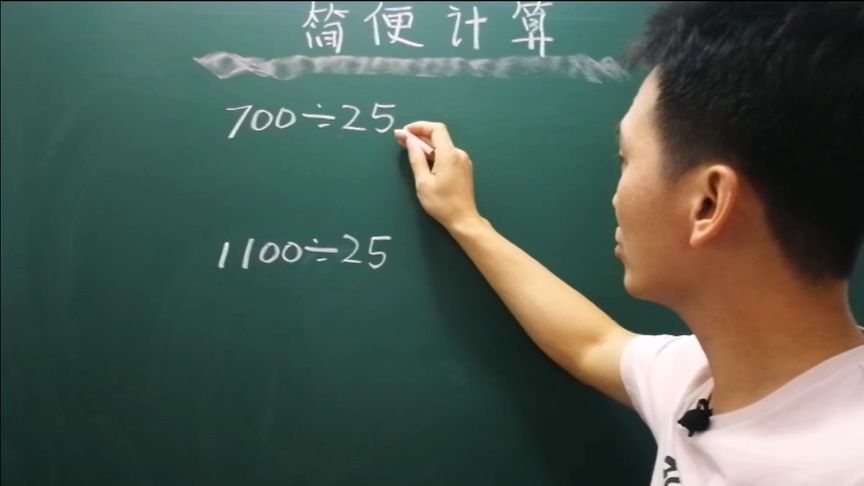 简便计算
700÷25
1100÷25